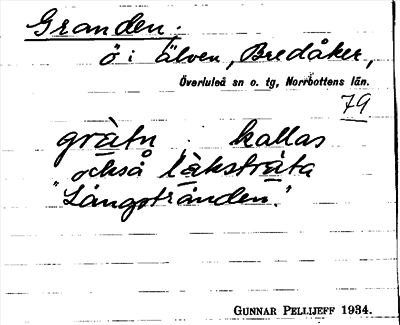 Granden.
ö i älven, Bredåker,
Överluleå sn o. tg, Norrbottens län.
79
gràtn kallas
också làkstràta
"Långstränden."
GUNNAR PELLIJEFF 1934.